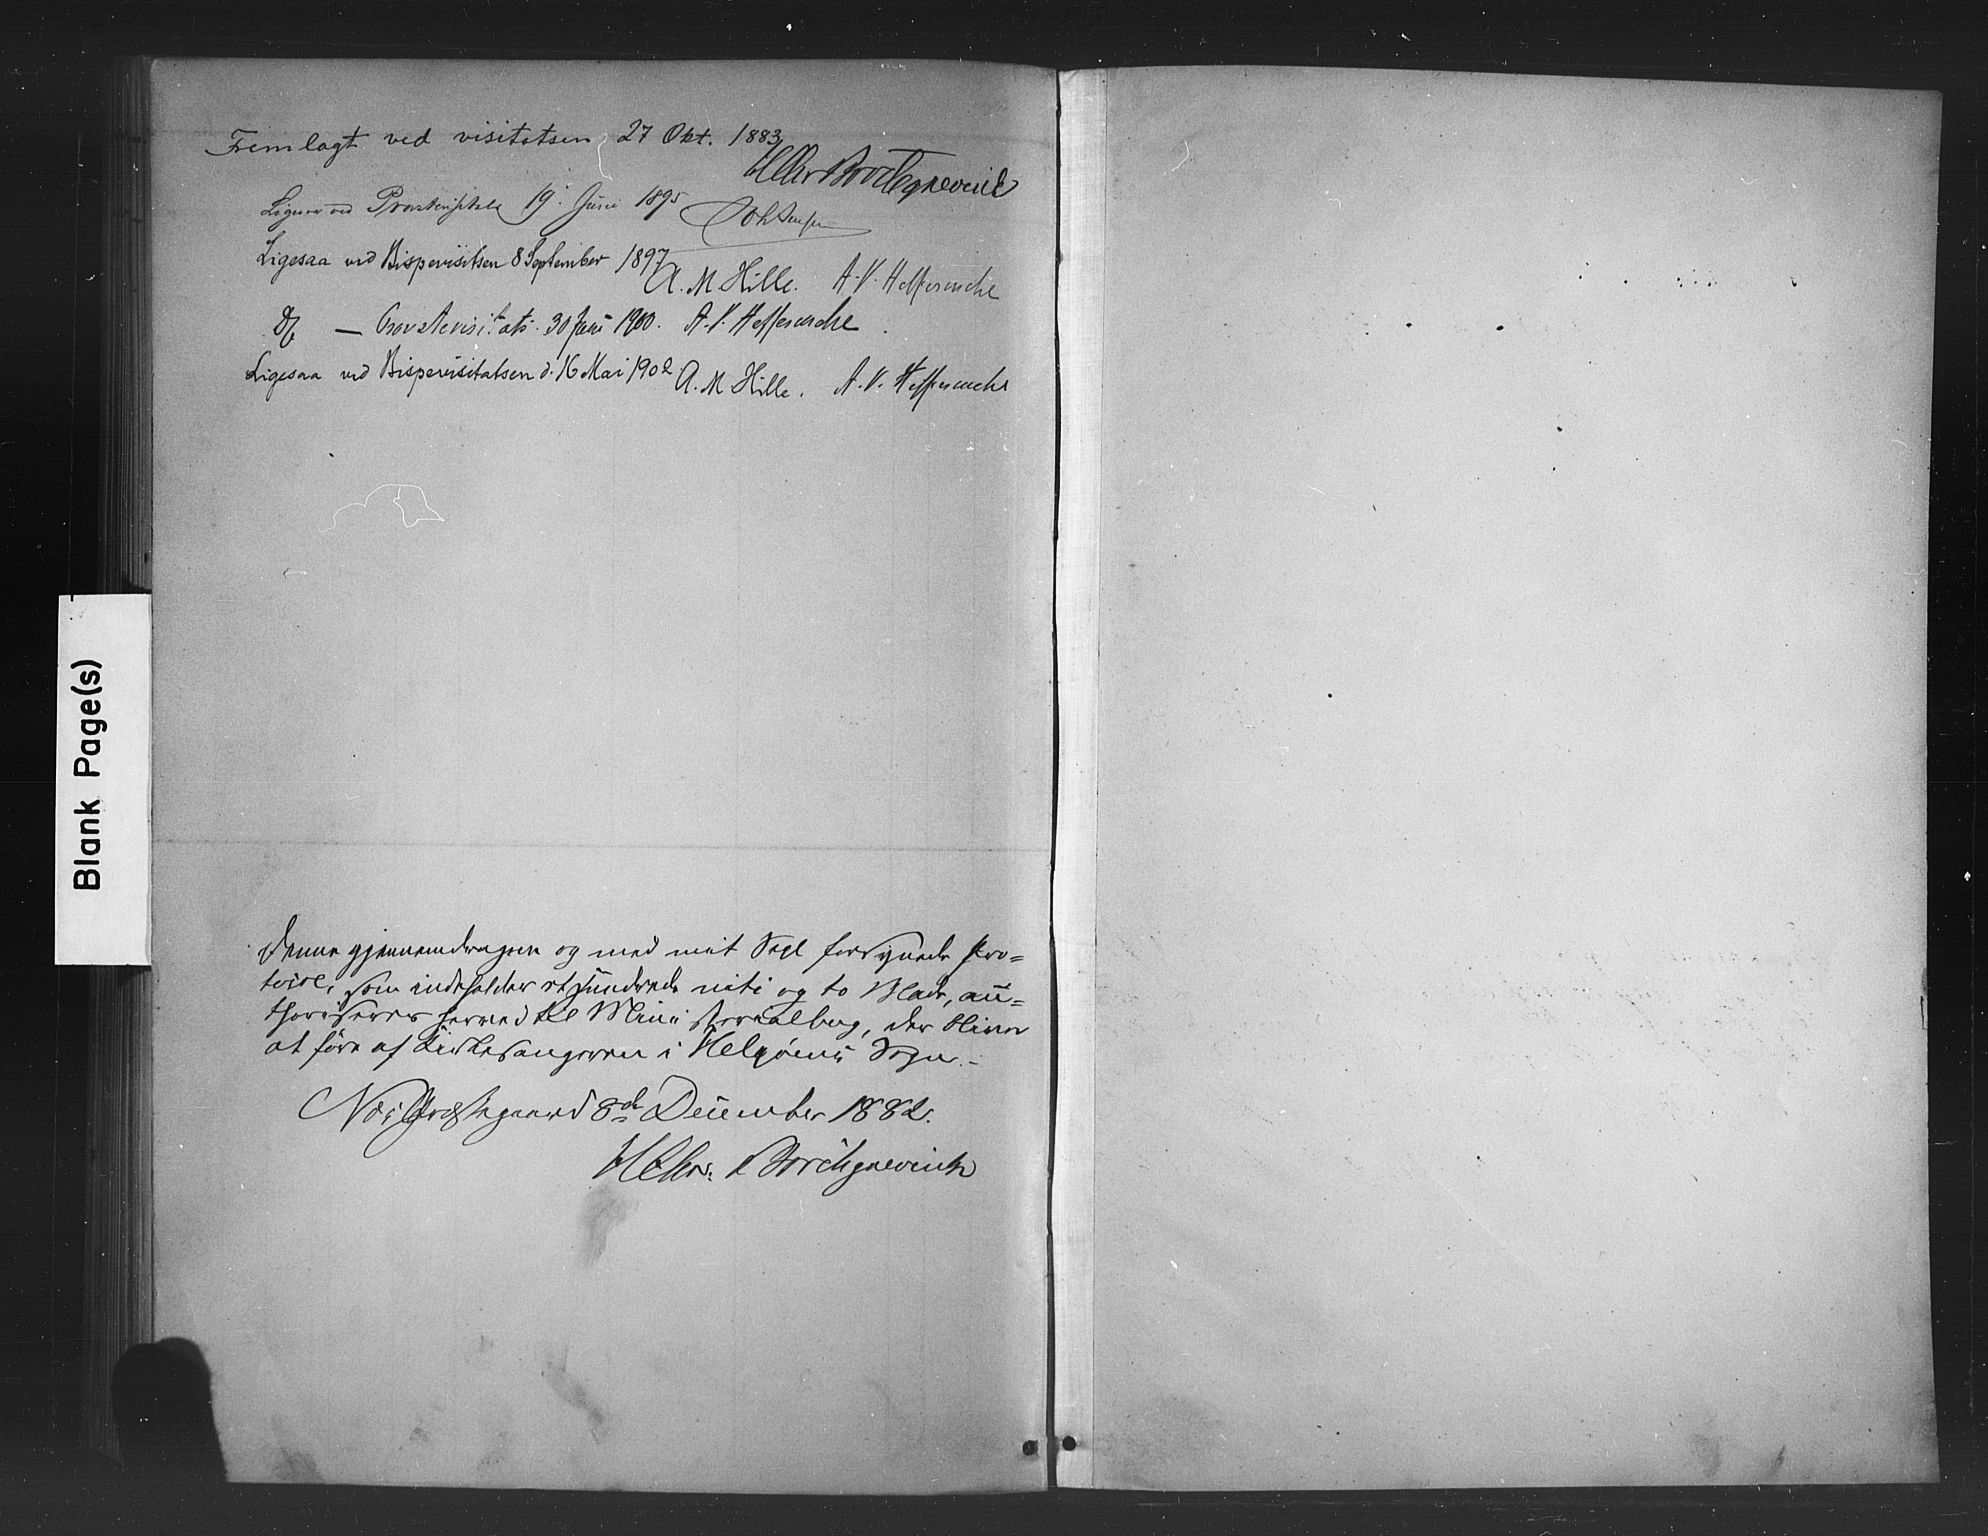 Fremlagt ved visitatsen 27 Okt. 1883
Borchgrevink
Ligesaa ved Provstevisitats 19. Juni 1895
Ligesaa ved Bispevisitsen 8 September 1897
A. M Hille. A. V. Heffermehl
Do — Provstevisitats. 30 Juni 1900. A. V. Heffermehl
Ligesaa ved Bispevisitatsen d. 16 Mai 1902 A. M Hille. A. V. Heffermehl
Denne gjennemdragne og med mit Segl forsynede Pro=
tocol, som indeholder et hundrede niti og to Blade, au=
thoriseres herved til Ministerialbog, der bliver
at føre af Kirkesangeren i Helgøens Sogn.-
Næs Præstegaard 8de December 1882.
Chr. Borchgrevink
Blank Page(s)